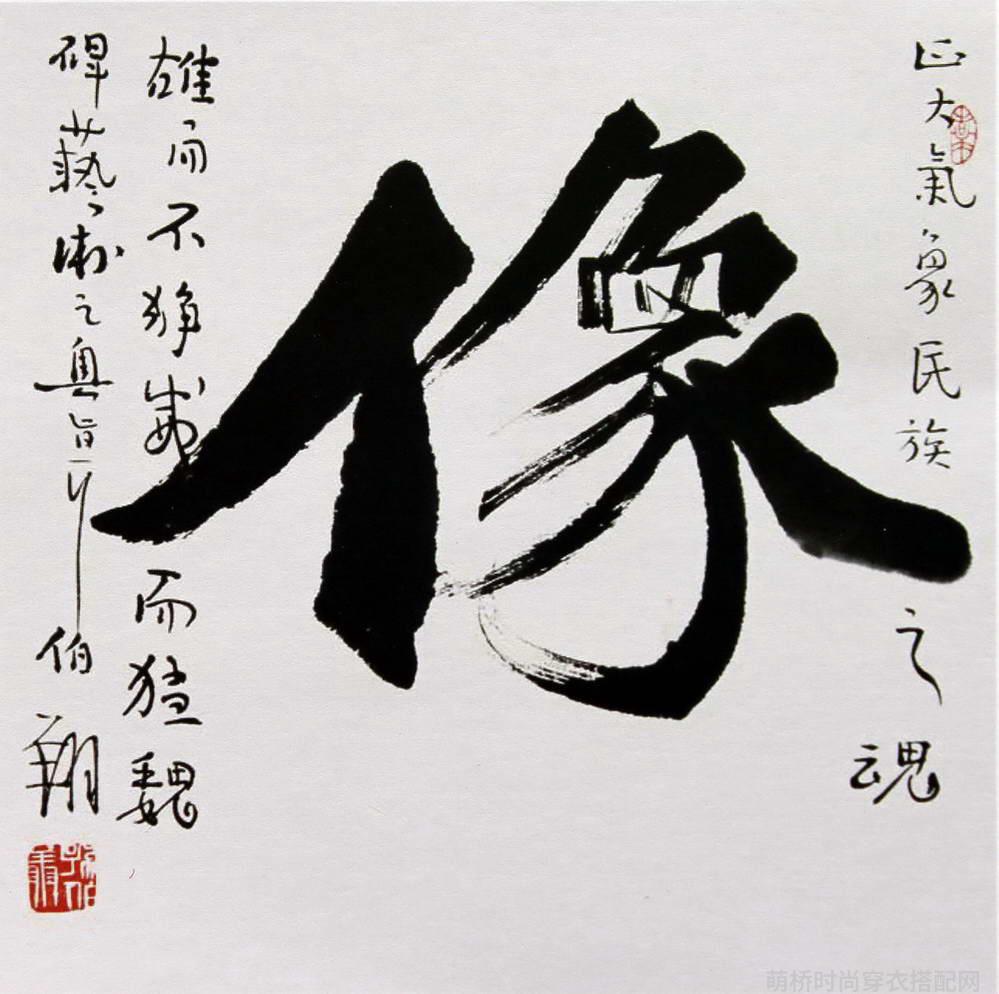 正大氣象民族之魂
像
雄而不狰威而猛魏
碑藝術之奥旨
伯翔
萌桥时尚穿衣搭配网